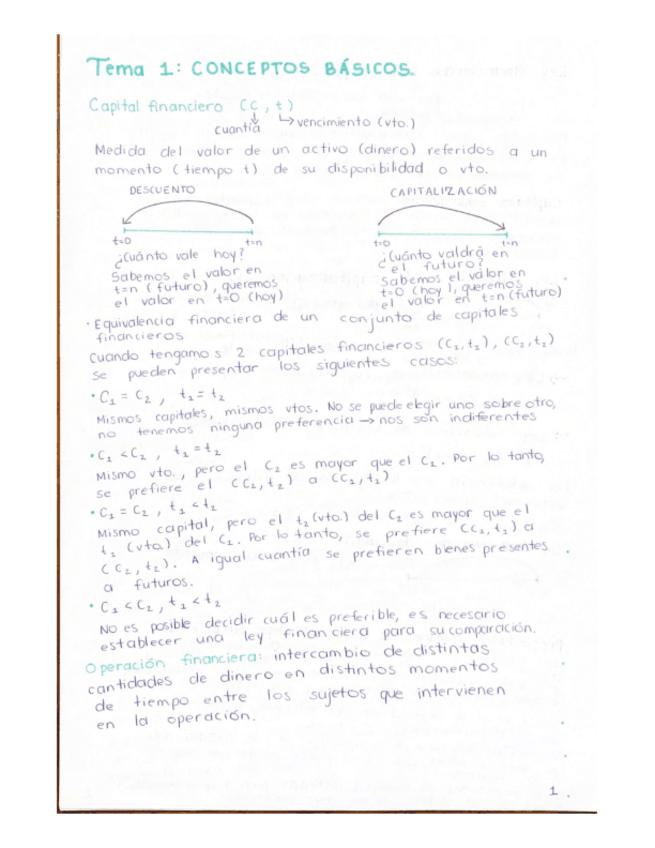 Tema 1: CONCEPTOS BÁSICOS.
Capital financiero (C, t)
cuantía
vencimiento (vto.)
Medida del valor de un activo (dinero) referidos a un
momento (tiempo t) de su disponibilidad o vto.
DESCUENTO
t=0 t=n
¿Cuánto vale hoy?
Sabemos el valor en
t=n (futuro), queremos
el valor en t=0 (hoy)
CAPITALIZACIÓN
t=0 t=n
¿Cuánto valdrá en
el futuro?
Sabemos el valor en
t=0 (hoy), queremos
el valor en t=n (futuro)
· Equivalencia financiera de un conjunto de capitales
financieros
Cuando tengamos 2 capitales financieros (C₁,t₁), (C₂,t₂)
se pueden presentar los siguientes casos:
• C₁ = C₂ , t₁ = t₂
Mismos capitales, mismos vtos. No se puede elegir uno sobre otro,
no tenemos ninguna preferencia → nos son indiferentes
• C₁ < C₂ , t₁ = t₂
Mismo vto., pero el C₂ es mayor que el C₁. Por lo tanto,
se prefiere el (C₂,t₂) a (C₁,t₁)
• C₁ = C₂ , t₁ < t₂
Mismo capital, pero el t₂ (vto.) del C₂ es mayor que el
t₁ (vto.) del C₁. Por lo tanto, se prefiere (C₁,t₁) a
(C₂,t₂). A igual cuantía se prefieren bienes presentes
a futuros.
• C₁ < C₂ , t₁ < t₂
No es posible decidir cuál es preferible, es necesario
establecer una ley financiera para su comparación.
Operación financiera: intercambio de distintas
cantidades de dinero en distintos momentos
de tiempo entre los sujetos que intervienen
en la operación.
1.